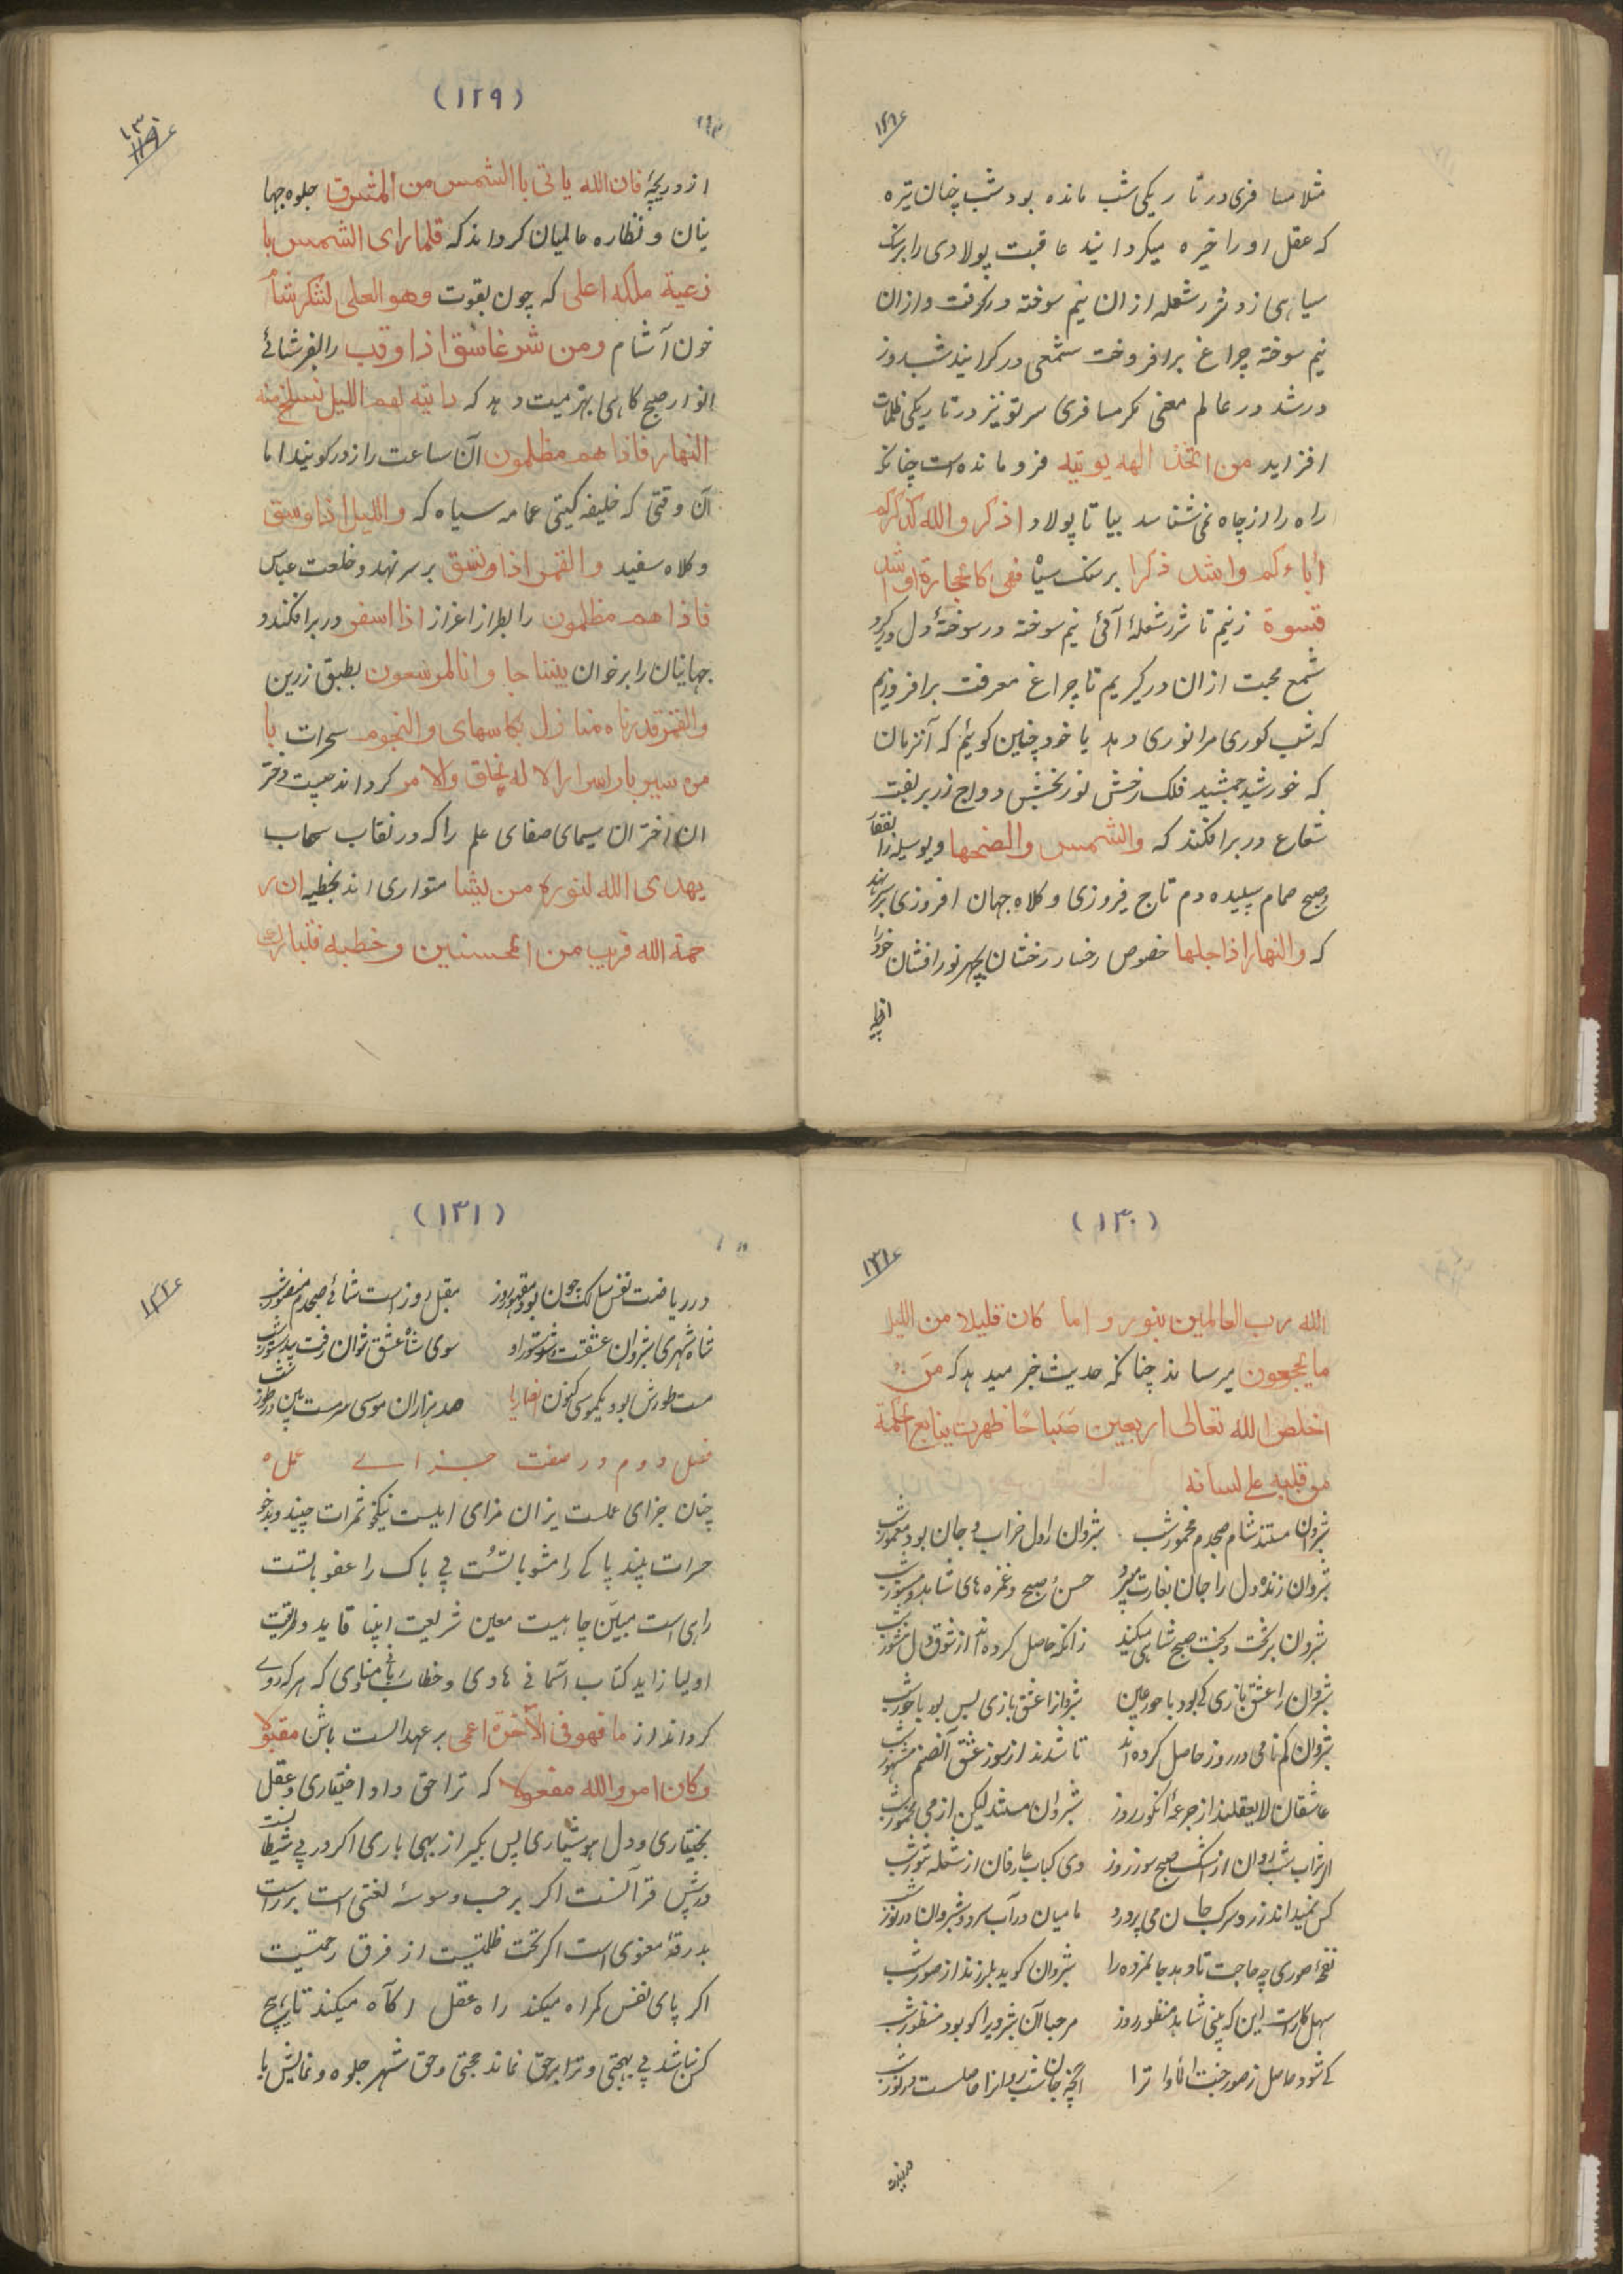 ۱۲۹ع
مثلا مسافری در تاریکی شب مانده بود شب چنان تیره
که عقل او را خیره میکردانید عاقبت پولادی را بر سنک
سیاهی زد شرر شعله ازان نیم سوخته در گرفت و ازان
نیم سوخته چراغ برافروخت شمعی در کرانید شب روز
در شد در عالم معنی مکر مسافری سر تو نیز در تاریکی ظلمات
افزاید من اتخذ الهه یو تیه فرو مانده است چنانکه
راه را از چاه نمی شناسد بیا تا پولاد اذکر والله کذکرکم
اباءکم واشد ذکرا بر سنک سیاه فهی کالحجارة او اشد
قسوة زنیم تا شرر شعلهٔ آئی نیم سوخته در سوختهٔ دل در کیرد
شمع محبت ازان در کیریم تا چراغ معرفت برافروزیم
که شب کوری مرا نوری دهد یا خود چنین کوئیم که آنزمان
که خورشید جمشید فلک رخش نور بخش دواج زر بربفت
شعاع در بر افکند که والشمس والضحها و بوسیله
وصبح صمام سپیده دم تاج فیروزی و کلاه جهان افروزی بر سر نهد
که والنهار اذا جلها خصوص رخسار رخشان بچهر نور افشان خود را
از دریچه
(۱۲۹)
۱۳۰ع
از دریچهٔ فان الله یاتی باالشمس من المشرق جلوه جها
نیان و نظاره عالمیان کرداند که فلما رای الشمس با
زغیة ملکه اعلی که چون بقوت وهو العلی لشکر شام
خون آشام ومن شر غاسق اذا وقب را لفر شائے
انوار صبح کاهی بهزیمیت دهد که وایته لهم اللیل نسلخ منه
النهار فاذا هم مظلمون آن ساعت را زدر کویند اما
آن وقتی که خلیفه کیتی عمامه سیاه که واللیل اذا وسق
و کلاه سفید والقمر اذا وتسق بر سر نهد و خلعت عباس
فاذا هم مظلمون را بطراز اغراز اذا اسفر در بر افکند و
جهانیان را بر خوان بینناجا وانا لموسعون بطبق زرین
والقمر قدرناه منازل بکاسهای والنجوم سحرات با
مره سیر بار اسرار الا له نخلق والامر کرداند چیست دختر
ان اختران سیمای صفای علم را که در نقاب سحاب
یهدی الله لنوره من یشا متواری اند بخطبه ان ر
حمة الله قریب من المحسنین وخطبه فتبارک
(۱۳۰)
۱۳۱ع
الله رب العالمین بنور و اما کان قلیلا من اللیل
ما یهجعون میرساند چنانکه حدیث خبر میدهد که من
اخلص الله تعالی اربعین صباحا ظهرت ینابع الحکمة
من قلبه علی لسانه
شبروان مستند شام صبحدم مخمور شب شبروان را دل خراب و جان بود معمور شب
شبروان زنده دل را جان بغارت میبرد حسن صبح و غمزه های شاهد مستور شب
شبروان بر تخت و بخت صبح شاهی میکنند زانکه حاصل کرده اند از شوق دل منشور شب
شبروان را عشق بازی کی بود با حور عین شبروانرا عشق بازی بس بود با حور شب
شبروان کم نامی در روز حاصل کرده اند تا شدند از سوز عشق آنصنم مشهور شب
عاشقان لا یعقلند از جرعهٔ انکور روز شبروان مستند لیکن از می مخمور شب
از شراب شب روان از اشک صبح سوز روز وی کباب عارفان از شعله تنور شب
کس نمیداند ز رو سرک جان می پرورد مامیان در آب سرد و شبروان در نور شب
نفحهٔ صوری چه حاجت تا دهد جا نمرده را شبروان کوید بلرزند از صور شب
سهل کار است این که بینی شاهد منظور روز مرحبا آن شبرویرا کو بود منظور شب
کی شود حاصل ز صور جنت الماوا ترا انچه جان شب روانرا حاصلست در نور شب
در ریاضت
(۱۳۱)
۱۳۲ع
در ریاضت نفس سالک چون بود مقهور روز مقبل روز است شائے صبحدم منصور شب
شاه شهری شبروان عشقست و شور او سوی شاه عشق نتوان رفت بیدستور شب
مست طورش بود یکموسی کنون انصار یا صد هزاران موسی سرمست بین در طور شب
فصل دوم در صفت جزاے عمل ه
چنان جزای عملست یزان مزای ابلیست نیکخو ثمرات چیند و بدخو
حرات پلید پاکے را مشو بالتست بے باک را عفو بتست
راهی است مبین چاهیست معین شریعت انبیا قاید و طریقت
اولیا زاید کتاب آسمانی هادی و خطاب ربانی منادی که هر که روے
کرداند از ما فهو فی الآخرة اعمی بر عهد الست باش مقبولا
وکان امر والله مفعولا که ترا حق داد اختیاری و عقل
بختیاری و دل هوشیاری پس بکیر از بهی یاری اکر در پے شیطا نست
در پیش قرآنست اکر بر چپ وسوسهٔ لغتی است بر راست
بدرقهٔ معنوی است اکر تحت ظلمتیست از فرق رحمتیست
اکر پای نفس کمراه میکند راه عقل اکآه میکند تا بهیچ
کس نباشد بے بهجتی و ترا بر حق نماند حجتی و حق شهر جلوه و نمایش با